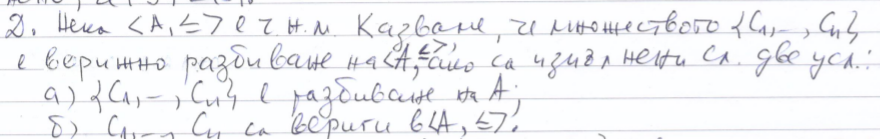 Д. Нека <A, ≤> е ч.н.м. Казваме, че множеството {C₁, –, Cₙ}
е верижно разбиване на <A, ≤>, ако са изпълнени сл. две усл.:
а) {C₁, –, Cₙ} е разбиване на A;
б) C₁, –, Cₙ са вериги в <A, ≤>.